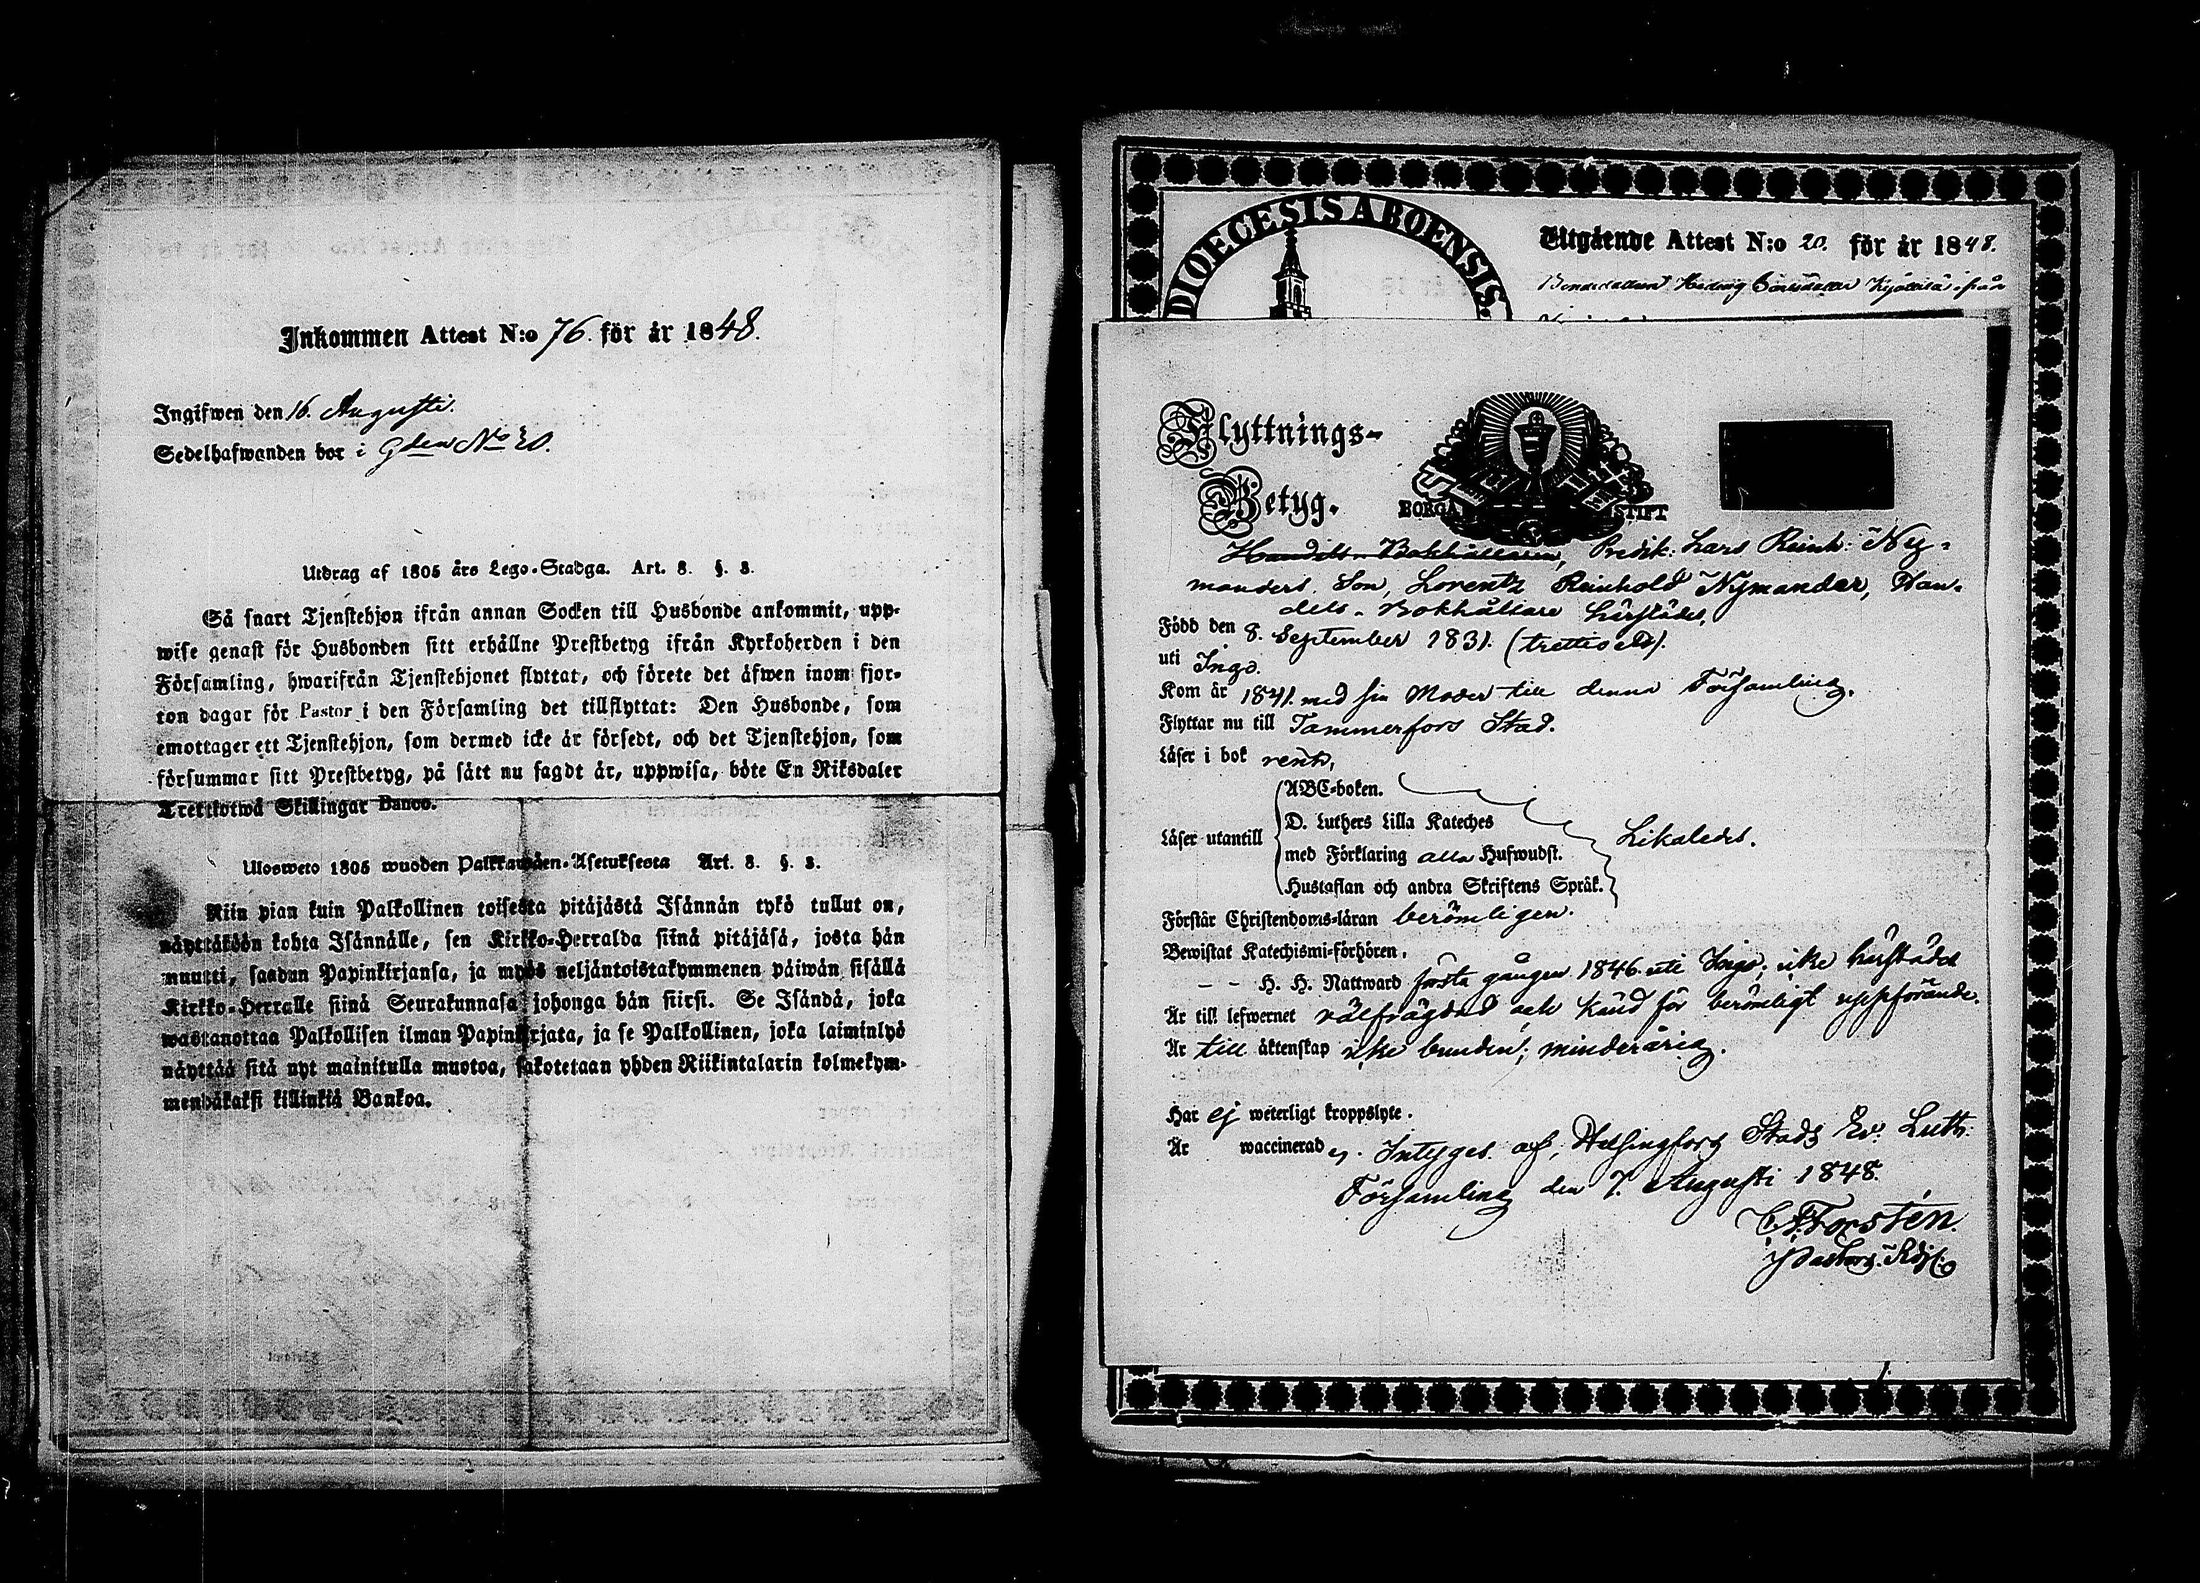 Inkommen Attest N:o 76. för år 1848.
Ingifwen den 16. Augusti.
Sedelhafwanden bor i Gden No 20.
Utdrag af 1805 års Lego-Stadga. Art. 8. §. 3.
Så snart Tjenstehjon ifrån annan Socken till Husbonde ankommit, upp-
wise genast för Husbonden sitt erhållne Prestbetyg ifrån Kyrkoherden i den
Församling, hwarifrån Tjenstehjonet flyttat, och förete det äfwen inom fjor-
ton dagar för Pastor i den Församling det tillflyttat: Den Husbonde, som
emottager ett Tjenstehjon, som dermed icke är försedt, och det Tjenstehjon, som
försummar sitt Prestbetyg, på sätt nu sagdt är, uppwisa, böte En Riksdaler
Trettiotwå Skillingar Banco.
Ulosweto 1805 wuoden Palkkawäen-Asetuksesta Art. 8. §. 3.
Niin pian kuin Palkollinen toisesta pitäjästä Isännän tykö tullut on,
näyttäköön kohta Isännälle, sen Kirkko-Herralda siinä pitäjäsä, josta hän
muutti, saadun Papinkirjansa, ja myös neljäntoistakymmenen päiwän sisällä
Kirkko-Herralle siinä Seurakunnasa johonga hän siirsi. Se Isändä, joka
wastanottaa Palkollisen ilman Papinkirjata, ja se Palkollinen, joka laiminlyö
näyttää sitä nyt mainitulla muotoa, sakotetaan yhden Riikintalarin kolmekym-
mendäkaksi killinkiä Bankoa.
DIOECESIS ABOENSIS.
Utgående Attest N:o 20. för år 1848.
Bondedottren Hedvig ifrån
Flyttnings-
Betyg.
BORGÅ STIFT
Handels-Bokhållaren, Predik: Lars Reinh: Ny-
manders Son, Lorentz Reinhold Nymander, Han-
dels-Bokhållare härstädes,
Född den 8. September 1831. (trettioett).
uti Ingo.
Kom år 1841. med sin Moder till denna Församling.
Flyttar nu till Tammerfors Stad.
Läser i bok rent,
ABC-boken.
D. Luthers Lilla Kateches
Läser utantill
med Förklaring alla Hufwudst.
Likaledes.
Hustaflan och andra Skriftens Språk.
Förstår Christendoms-läran berömligen.
Bewistat Katechismi-förhören,
– – H. H. Nattward första gången 1846. uti Ingo, icke härstädes
Är till lefwernet välfrägdad och känd för berömligt uppförande.
Är till äktenskap icke bunden; minderårig.
Har ej weterligt kroppslyte.
Är waccinerad. Intygas af, Helsingfors Stads Ev. Luth.
Församling den 7. Augusti 1848.
Forstén.
Pastors